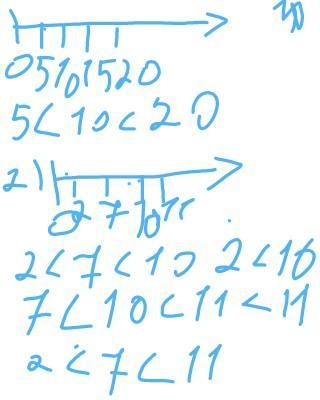 0 5 10 15 20
5 < 10 < 20
2)
0 2 7 10 11
2 < 7 < 10 2 < 10
7 < 10 < 11 < 11
2 < 7 < 11